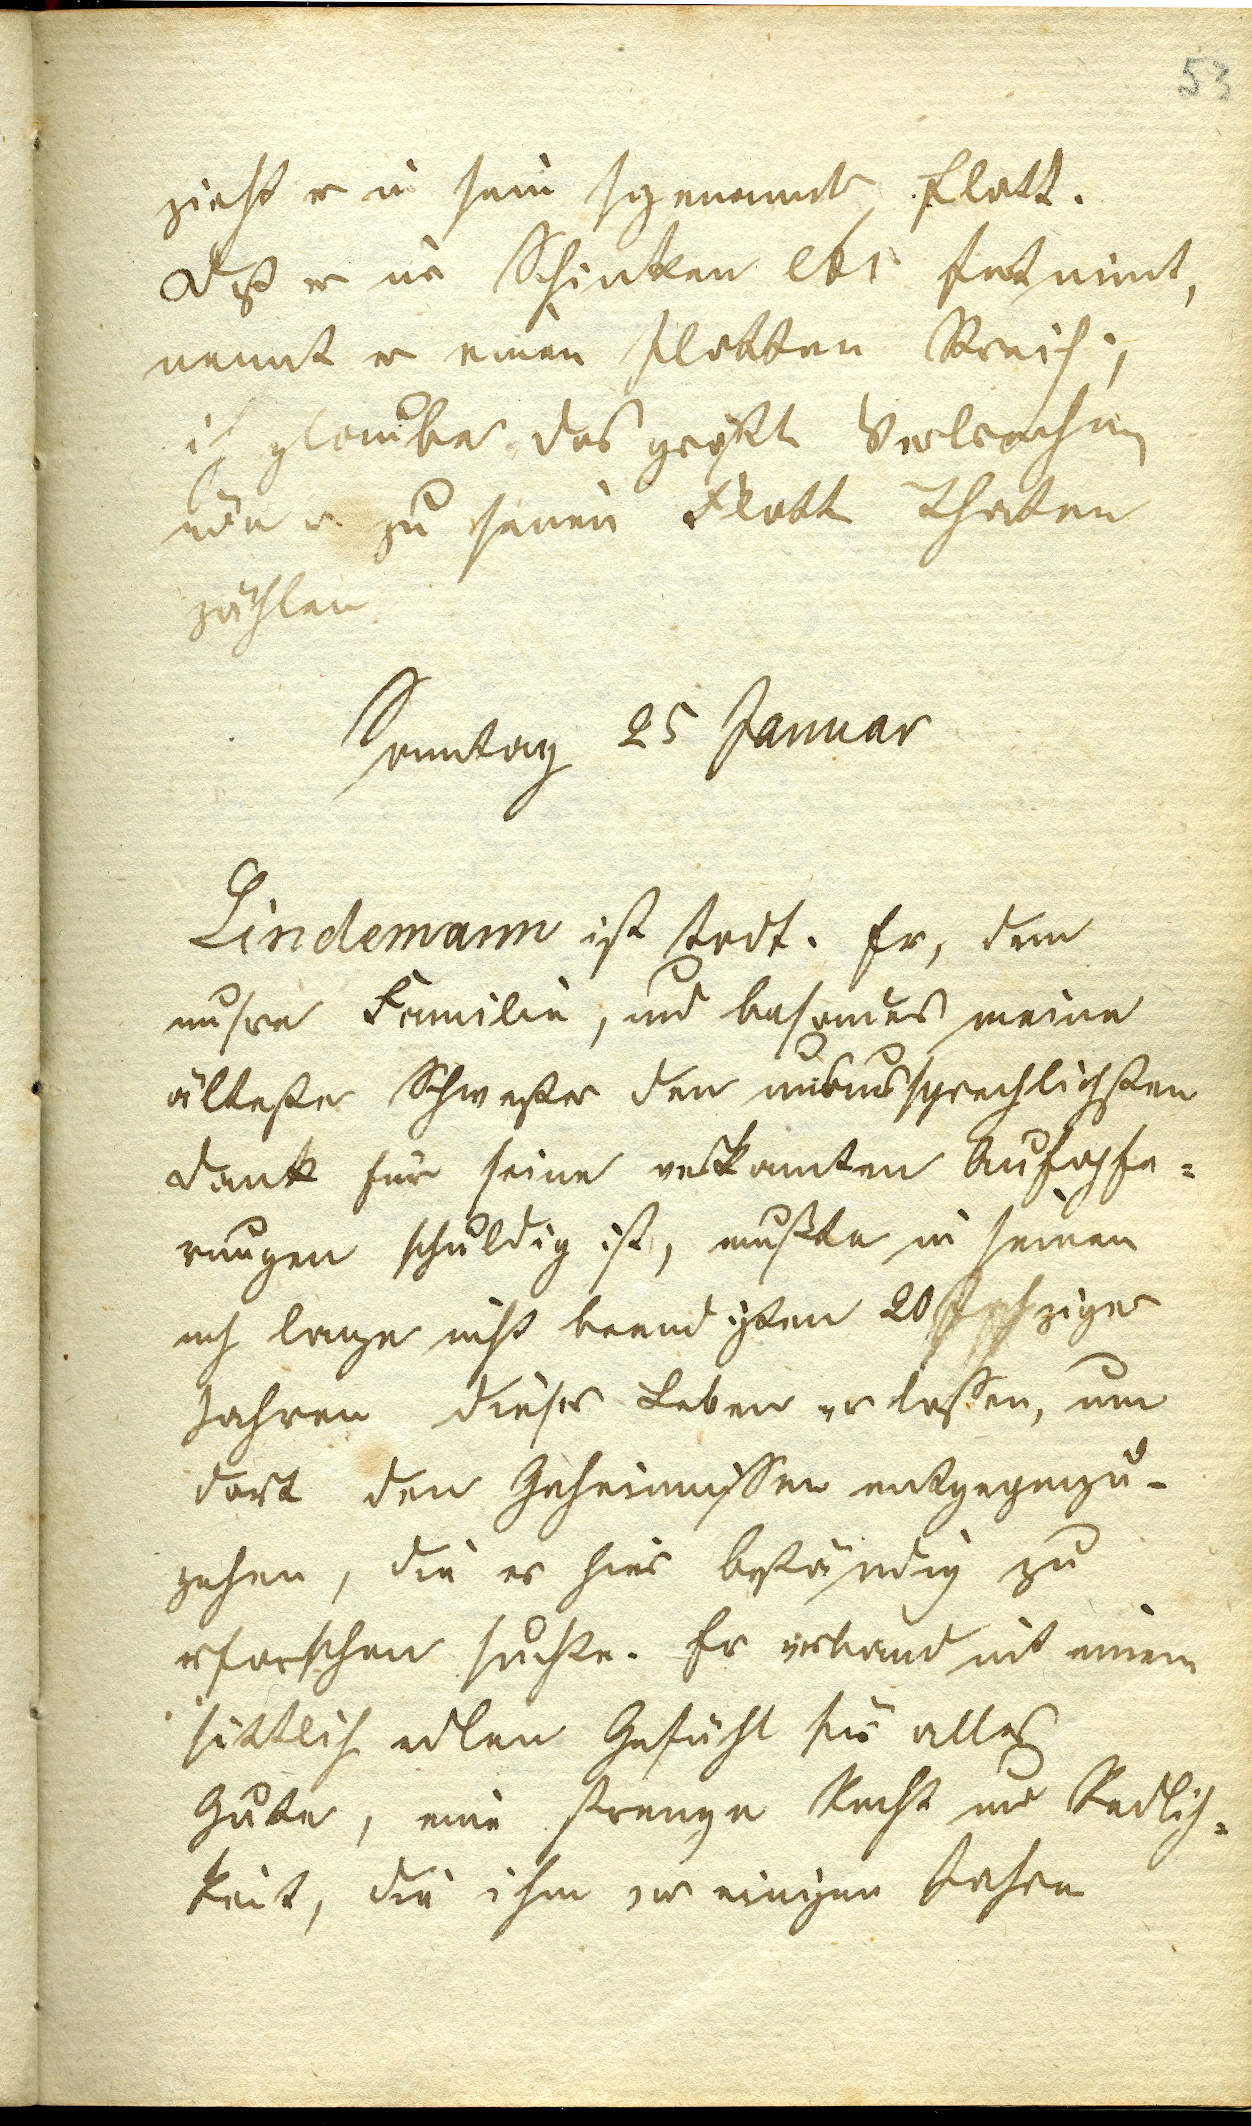 53
zieht er in sein sogenannte, flott.
Daß er ne Schinken
nennt er einen flotten Streich,
ich glaube das größte Verbrechen
würde er zu seinen Flott Thaten
zählen
Sonntag 25 Januar
Lindemann ist todt. Er, dem
unsre Familie, und besonders meine
älteste Schwester den unaussprechlichsten
Dank für seine verkanten Aufopfe=
rungen schuldig ist, mußte in seinen
noch lange nicht beendigten 20ziger
Jahren dieses Leben verlassen, um
dort den Geheimnissen entgegenzu-
gehen, die er hier beständig zu
erforschen suchte. Er verband mit einem
sittlich edlen Gefühl für alles
Gute, eine strenge Recht und Redlich=
keit, die ihm vor einigen Jahren